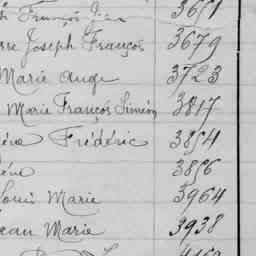 François Jean 3651
Joseph François 3679
Marie Ange 3723
Marie François Siméon 3817
Frédéric 3854
3856
Louis Marie 3964
Jean Marie 3938